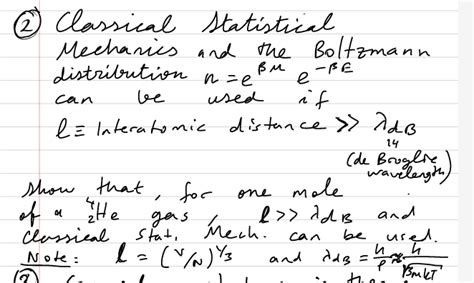 ② Classical Statistical
Mechanics and the Boltzmann
distribution n = e^{βμ} e^{-βE}
can be used if
l ≡ Interatomic distance >> λ_{dB}
(de Broglie
wavelength)
Show that, for one mole
of a ⁴₂He gas, l >> λ_{dB} and
Classical Stat. Mech. can be used.
Note: l = (V/N)^{1/3} and λ_{dB} = h/p ≈ h/√(3mkT)